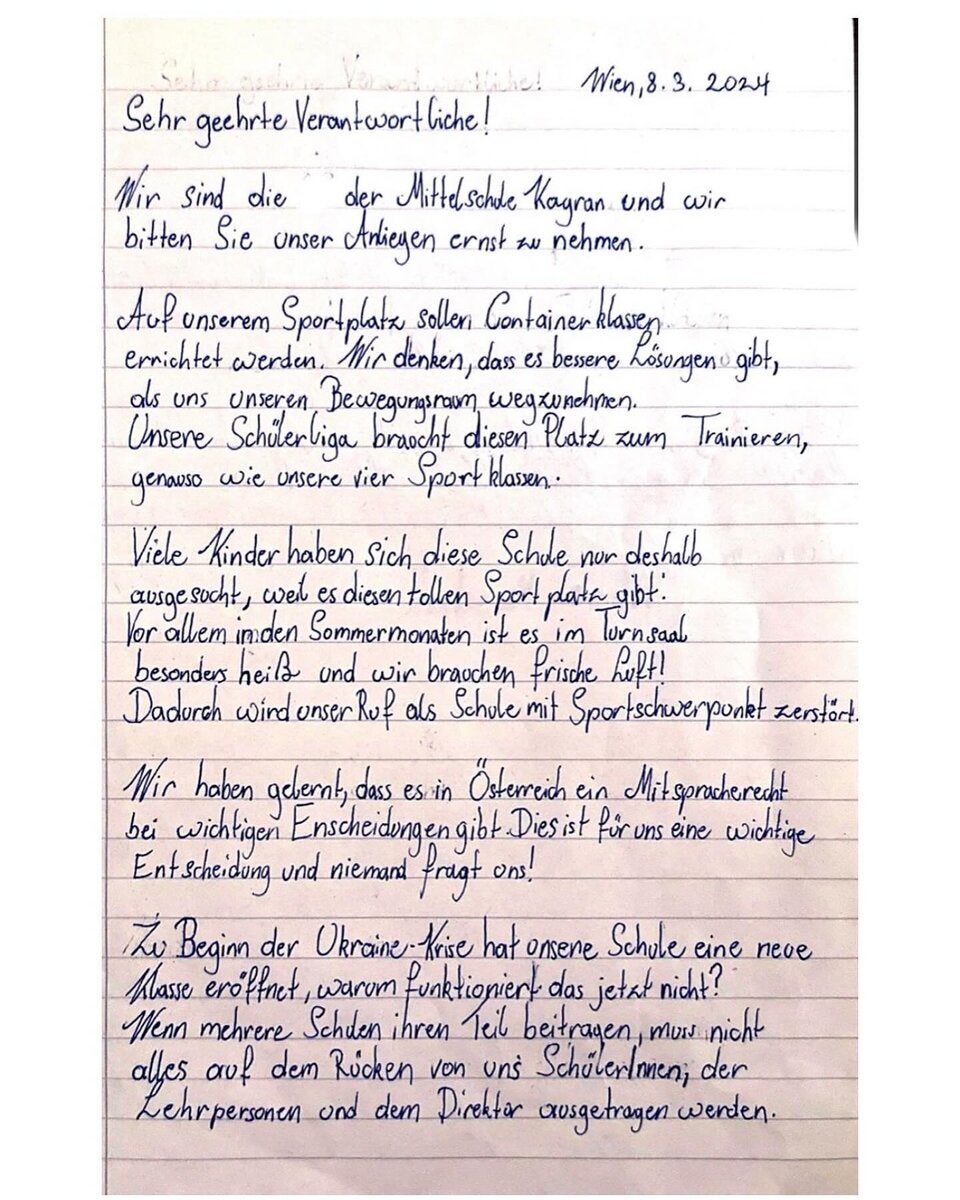 Wien, 8. 3. 2024
Sehr geehrte Verantwortliche!
Wir sind die der Mittelschule Kagran und wir
bitten Sie unser Anliegen ernst zu nehmen.
Auf unserem Sportplatz sollen Containerklassen
errichtet werden. Wir denken, dass es bessere Lösungen gibt,
als uns unseren Bewegungsraum wegzunehmen.
Unsere Schülerliga braucht diesen Platz zum Trainieren,
genauso wie unsere vier Sportklassen.
Viele Kinder haben sich diese Schule nur deshalb
ausgesucht, weil es diesen tollen Sportplatz gibt.
Vor allem in den Sommermonaten ist es im Turnsaal
besonders heiß und wir brauchen frische Luft!
Dadurch wird unser Ruf als Schule mit Sportschwerpunkt zerstört.
Wir haben gelernt, dass es in Österreich ein Mitspracherecht
bei wichtigen Enscheidungen gibt. Dies ist für uns eine wichtige
Entscheidung und niemand fragt uns!
Zu Beginn der Ukraine-Krise hat unsere Schule eine neue
Klasse eröffnet, warum funktioniert das jetzt nicht?
Wenn mehrere Schulen ihren Teil beitragen, muss nicht
alles auf dem Rücken von uns SchülerInnen, der
Lehrpersonen und dem Direktor ausgetragen werden.